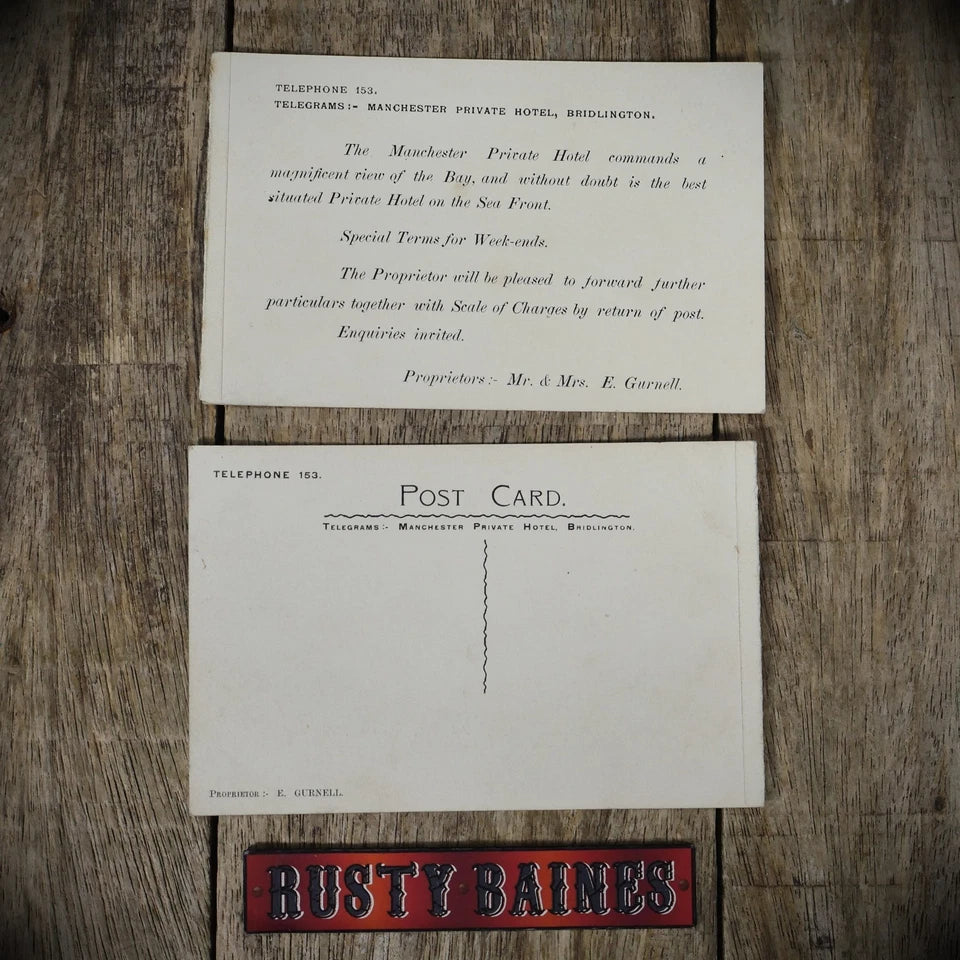 TELEPHONE 153.
TELEGRAMS:- MANCHESTER PRIVATE HOTEL, BRIDLINGTON.
The Manchester Private Hotel commands a
magnificent view of the Bay, and without doubt is the best
situated Private Hotel on the Sea Front.
Special Terms for Week-ends.
The Proprietor will be pleased to forward further
particulars together with Scale of Charges by return of post.
Enquiries invited.
Proprietors:- Mr. & Mrs. E. Gurnell.
TELEPHONE 153.
POST CARD.
TELEGRAMS:- MANCHESTER PRIVATE HOTEL, BRIDLINGTON.
PROPRIETOR:- E. GURNELL.
RUSTY BAINES